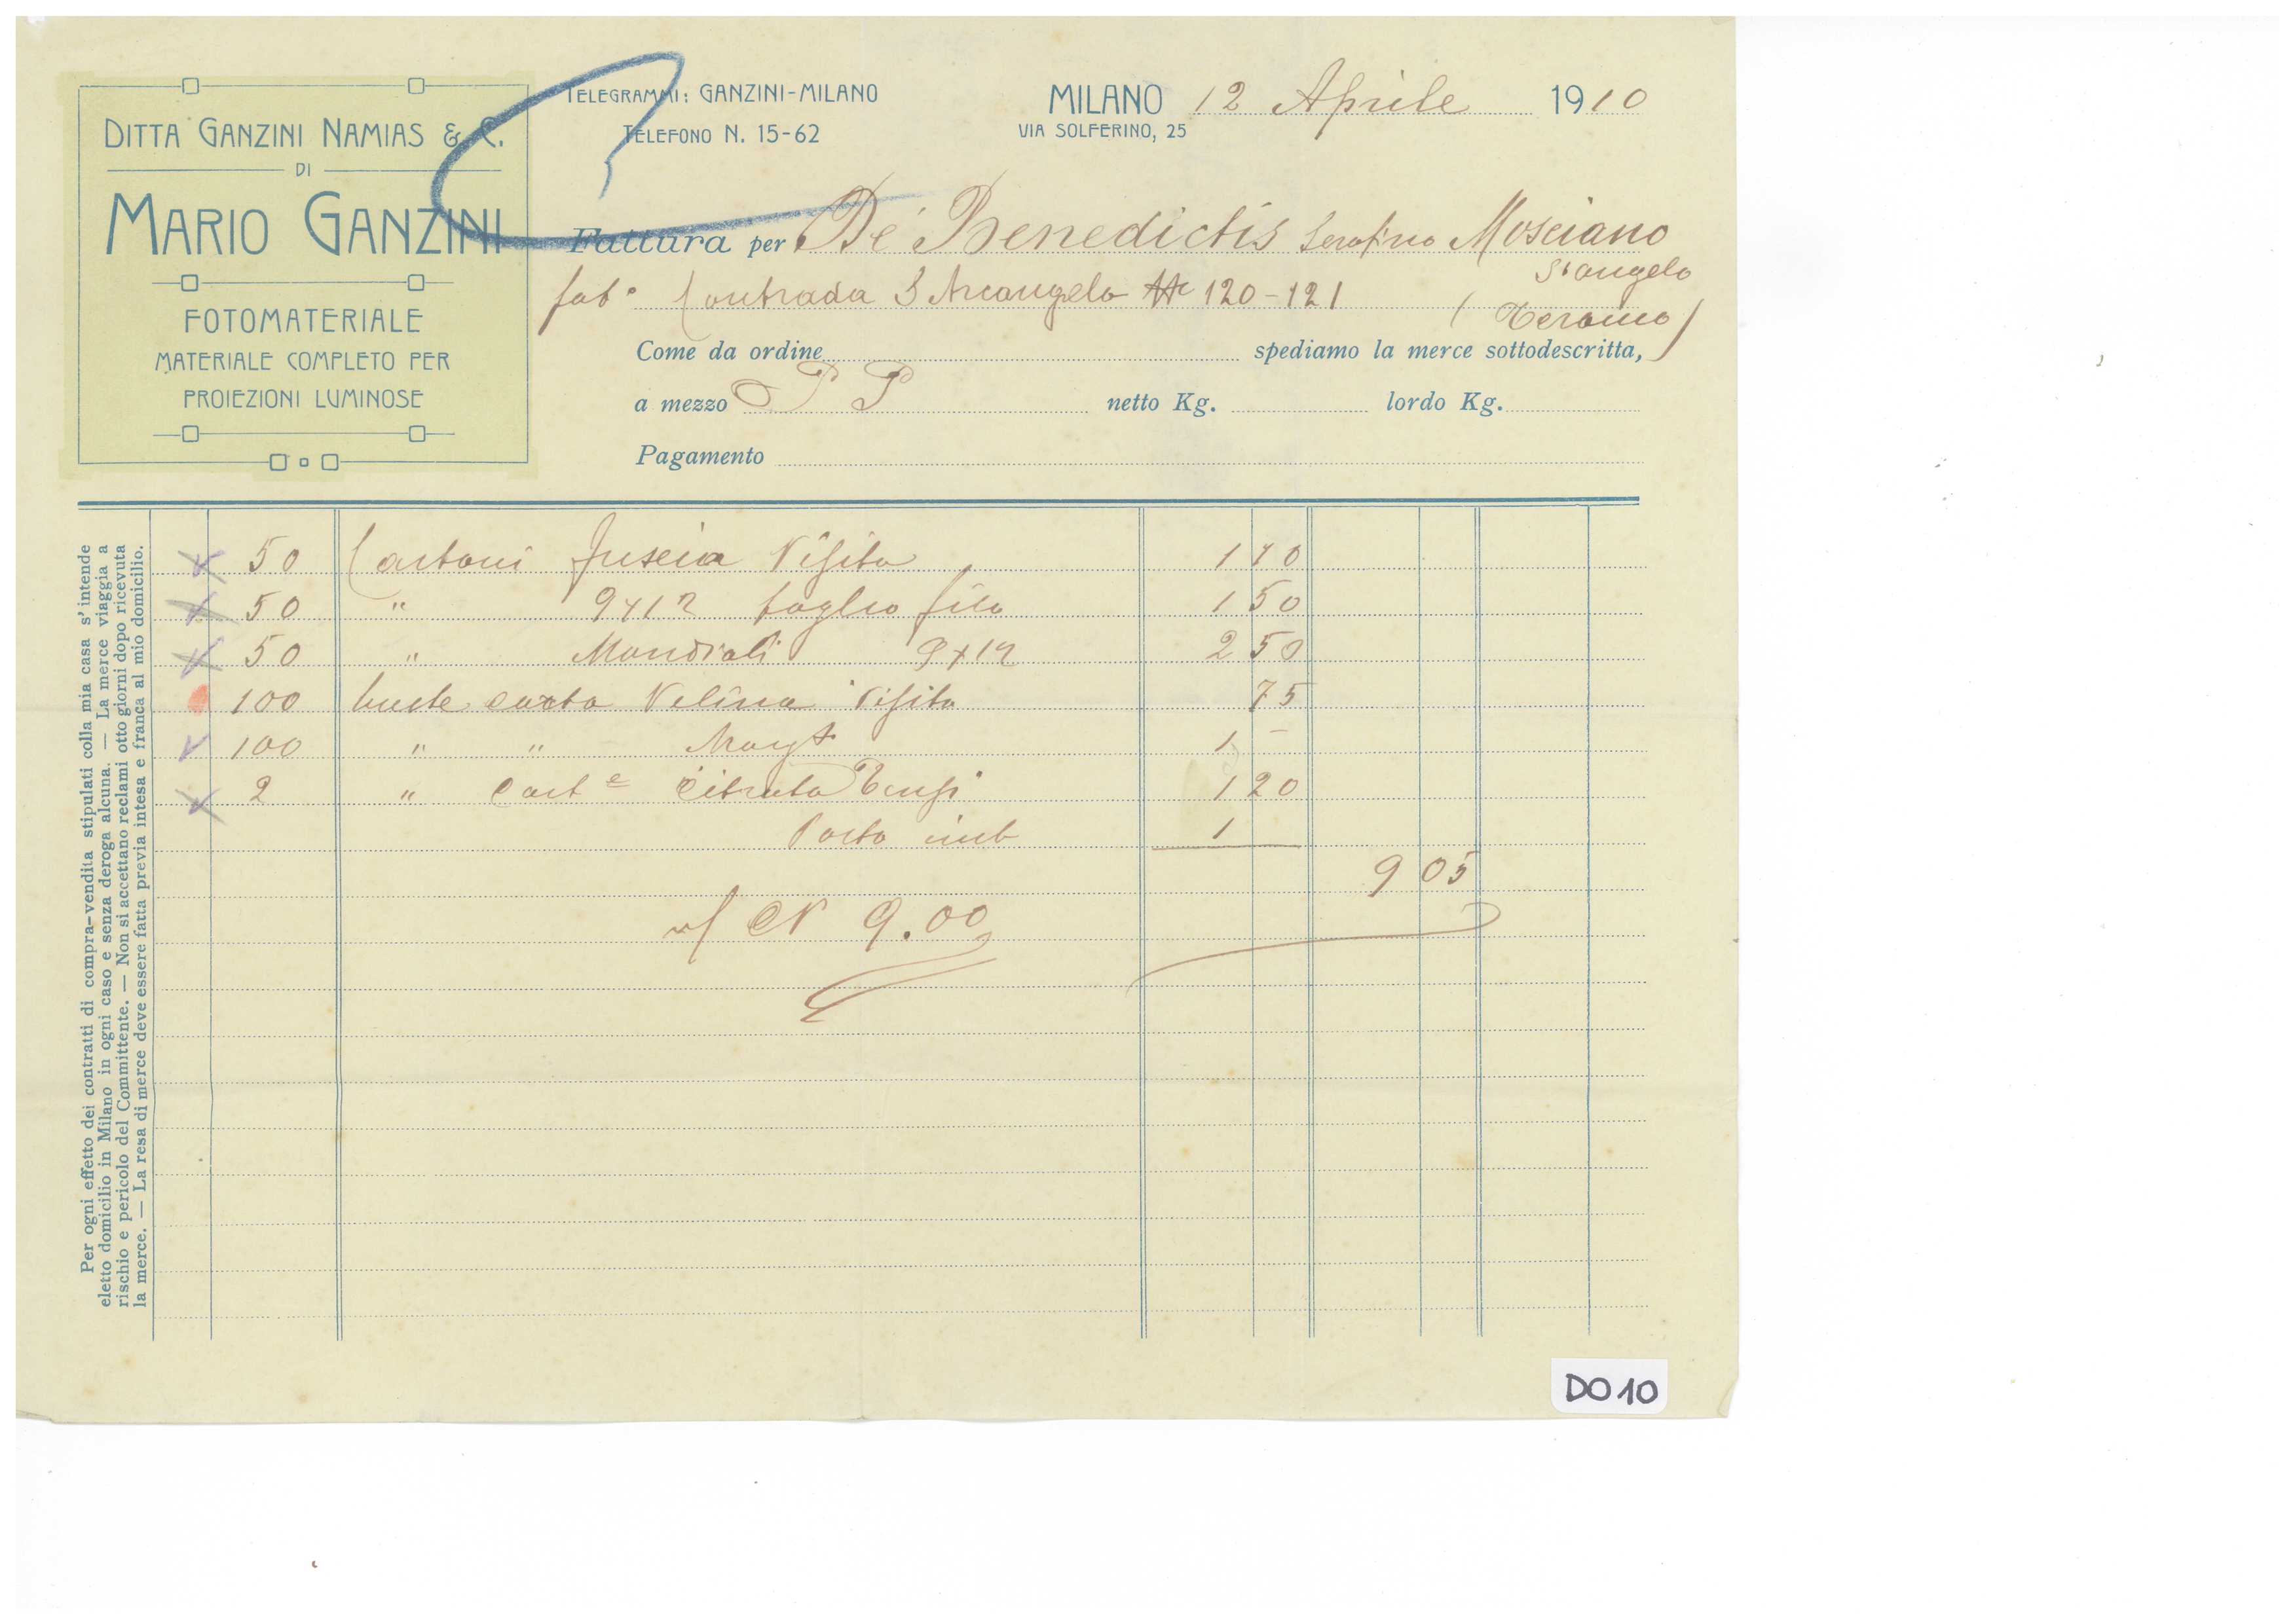 DITTA GANZINI NAMIAS & C.
DI
MARIO GANZINI
FOTOMATERIALE
MATERIALE COMPLETO PER
PROIEZIONI LUMINOSE
TELEGRAMMI: GANZINI-MILANO
TELEFONO N. 15-62
MILANO 12 Aprile 1910
VIA SOLFERINO, 25
Fattura per De Benedictis Serafino Mosciano
S. Angelo
fot° Contrada S Arcangelo 120-121
(Teramo)
Come da ordine spediamo la merce sottodescritta,
a mezzo P P netto Kg. lordo Kg.
Pagamento
50 Cartoni fuscia Visita 1 10
50 " 9x12 taglio filo 1 50
50 " Mondiali 9x12 2 50
100 buste carta Velina Visita 75
100 " " Margt 1 -
2 " Cart e Citrato Tensi 1 20
Porto imb 1
9 05
9.00
Per ogni effetto dei contratti di compra-vendita stipulati colla mia casa s'intende
eletto domicilio in Milano in ogni caso e senza deroga alcuna. — La merce viaggia a
rischio e pericolo del Committente. — Non si accettano reclami otto giorni dopo ricevuta
la merce. — La resa di merce deve essere fatta previa intesa e franca al mio domicilio.
DO10